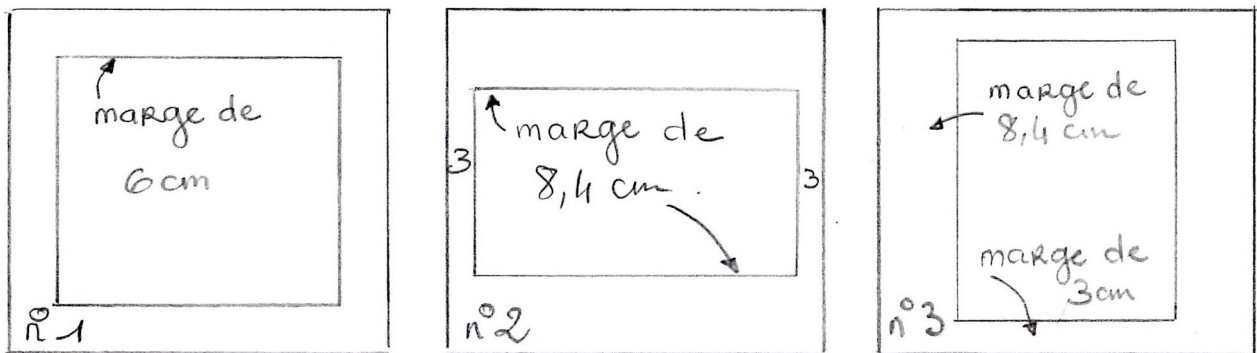 marge de
6 cm
n° 1
marge de
8,4 cm.
3
3
n° 2
marge de
8,4 cm
marge de
3 cm
n° 3